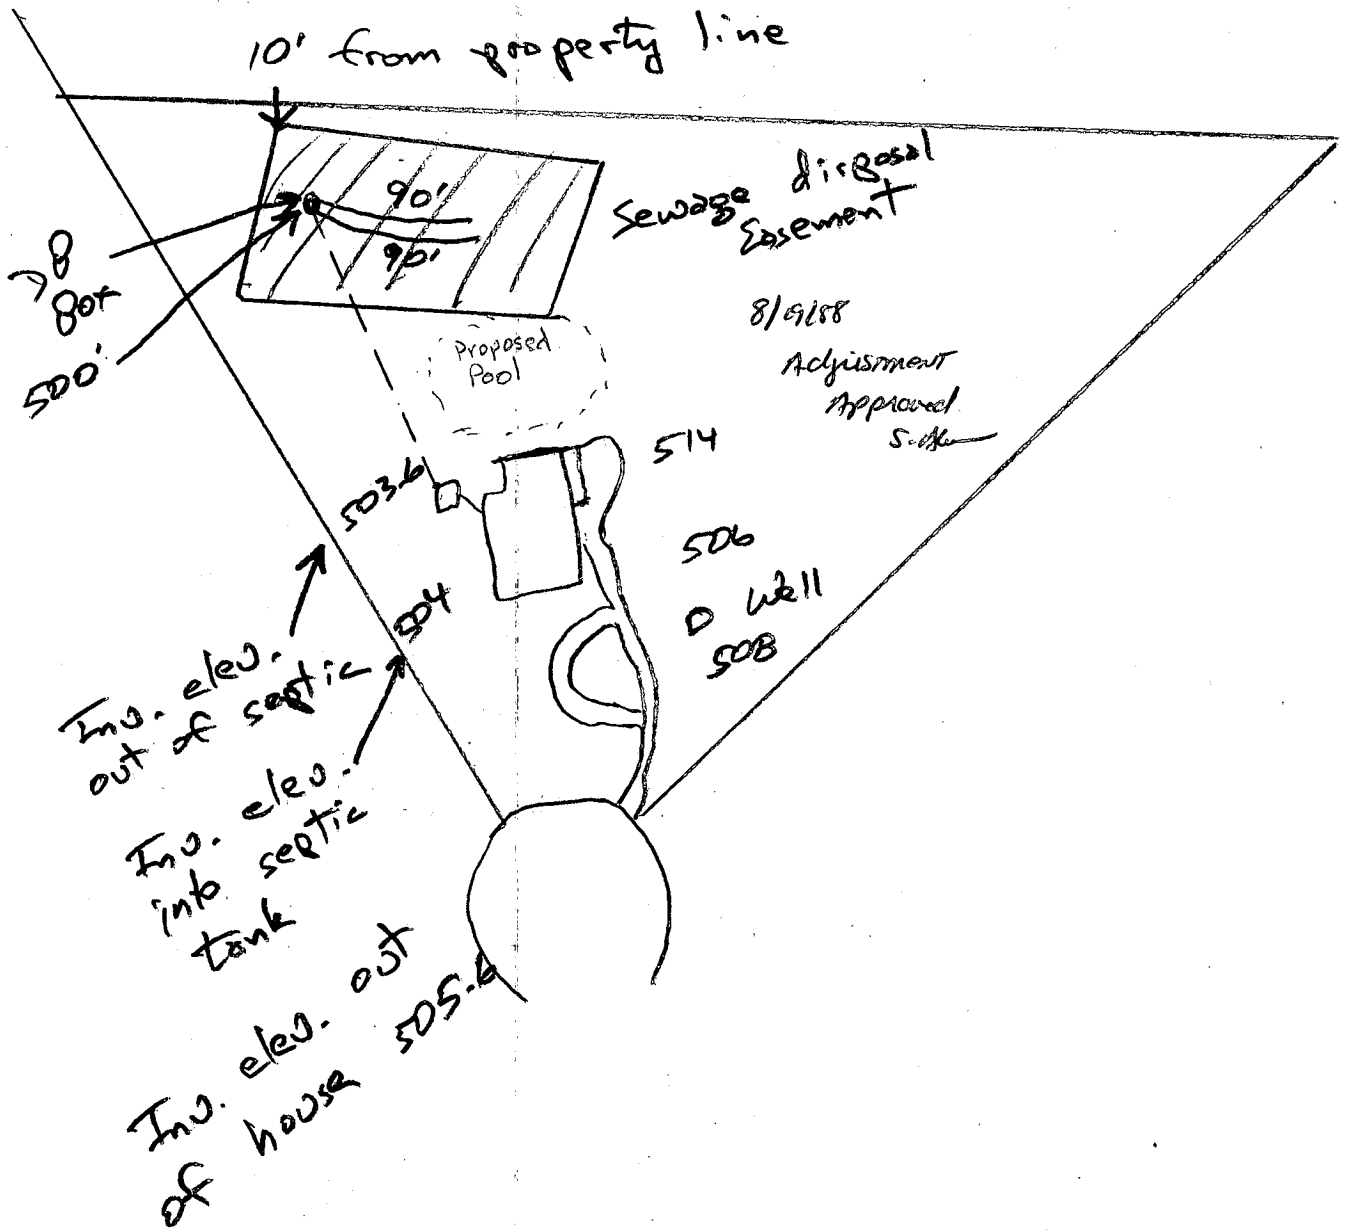 10' from property line
Sewage disposal
Easement
90'
90'
8
Box
500'
8/19/88
Adjustment
Approved
Proposed
Pool
514
503.6
506
Well
504
508
Inv. elev.
out of septic
Inv. elev.
into septic
tank
Inv. elev. out
of house 505.6